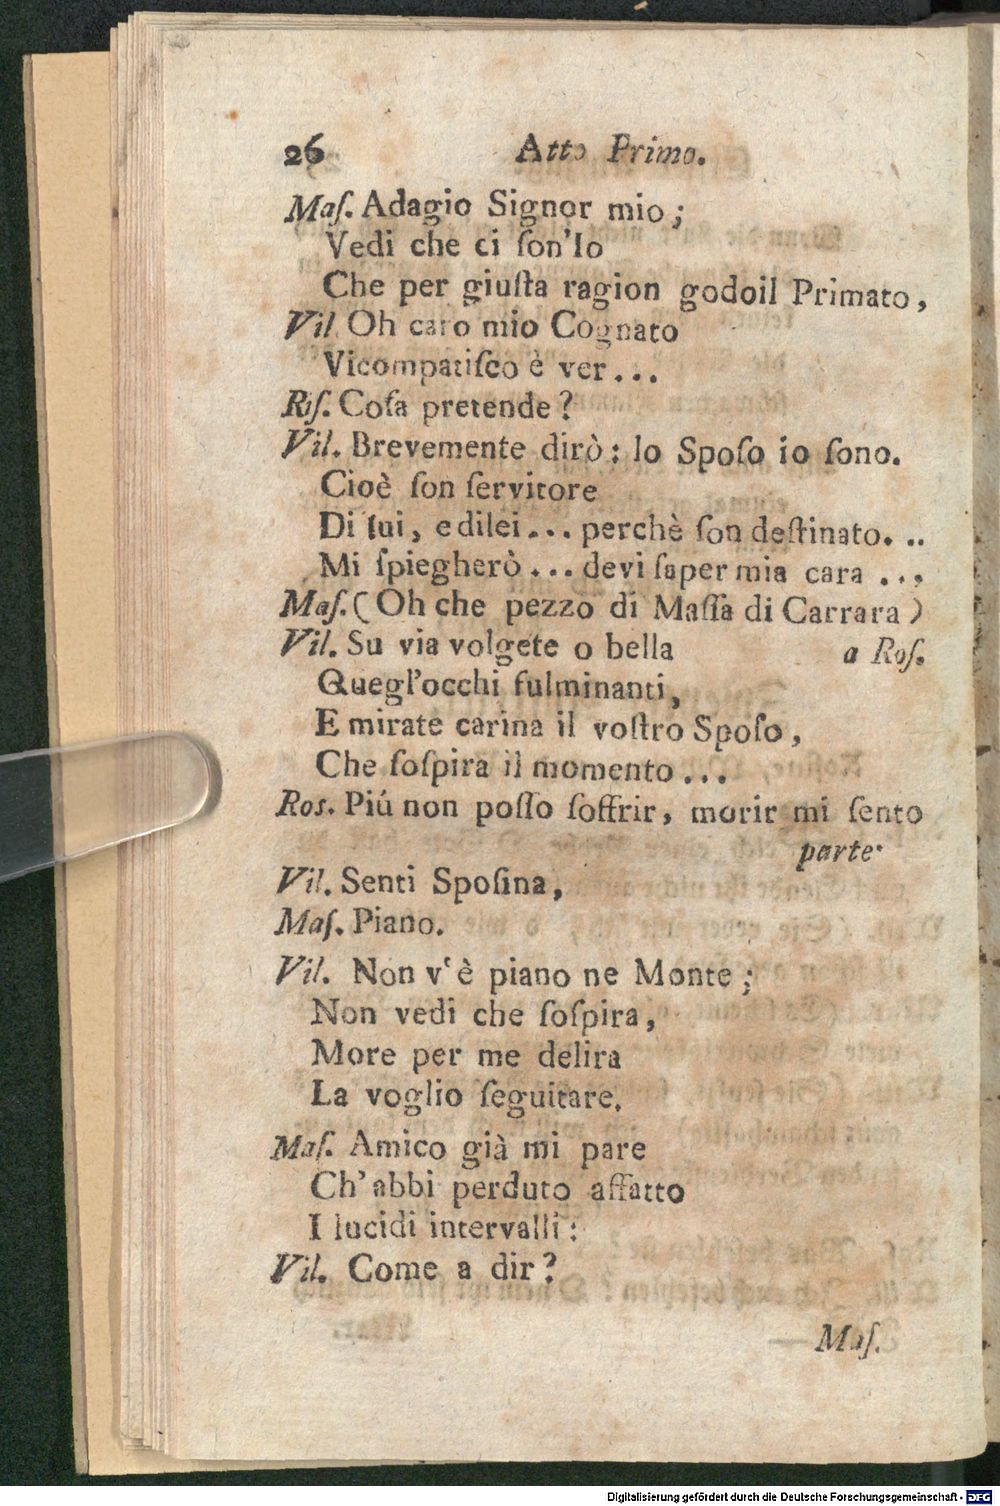 26 Atto Primo.
Maſ. Adagio Signor mio;
Vedi che ci ſon'Io
Che per giuſta ragion godoil Primato,
Vil Oh caro mio Cognato
Vicompatiſco è ver...
Riſ. Coſa pretende?
Vil. Brevemente dirò: lo Spoſo io ſono.
Cioè ſon ſervitore
Di lui, e dilei... perchè ſon deſtinato. ..
Mi ſpiegherò... devi ſaper mia cara ...
Maſ. (Oh che pezzo di Maſſa di Carrara)
Vil. Su via volgete o bella a Roſ.
Quegl'occhi fulminanti,
E mirate carina il voſtro Spoſo,
Che ſoſpira il momento...
Ros. Piú non poſſo ſoffrir, morir mi ſento
parte.
Vil. Senti Spoſina,
Maſ. Piano.
Vil. Non v'è piano ne Monte;
Non vedi che ſoſpira,
More per me delira
La voglio ſeguitare.
Maſ. Amico già mi pare
Ch'abbi perduto affatto
I lucidi intervalli:
Vil. Come a dir?
Maſ.
Digitalisierung gefördert durch die Deutsche Forschungsgemeinschaft - DFG